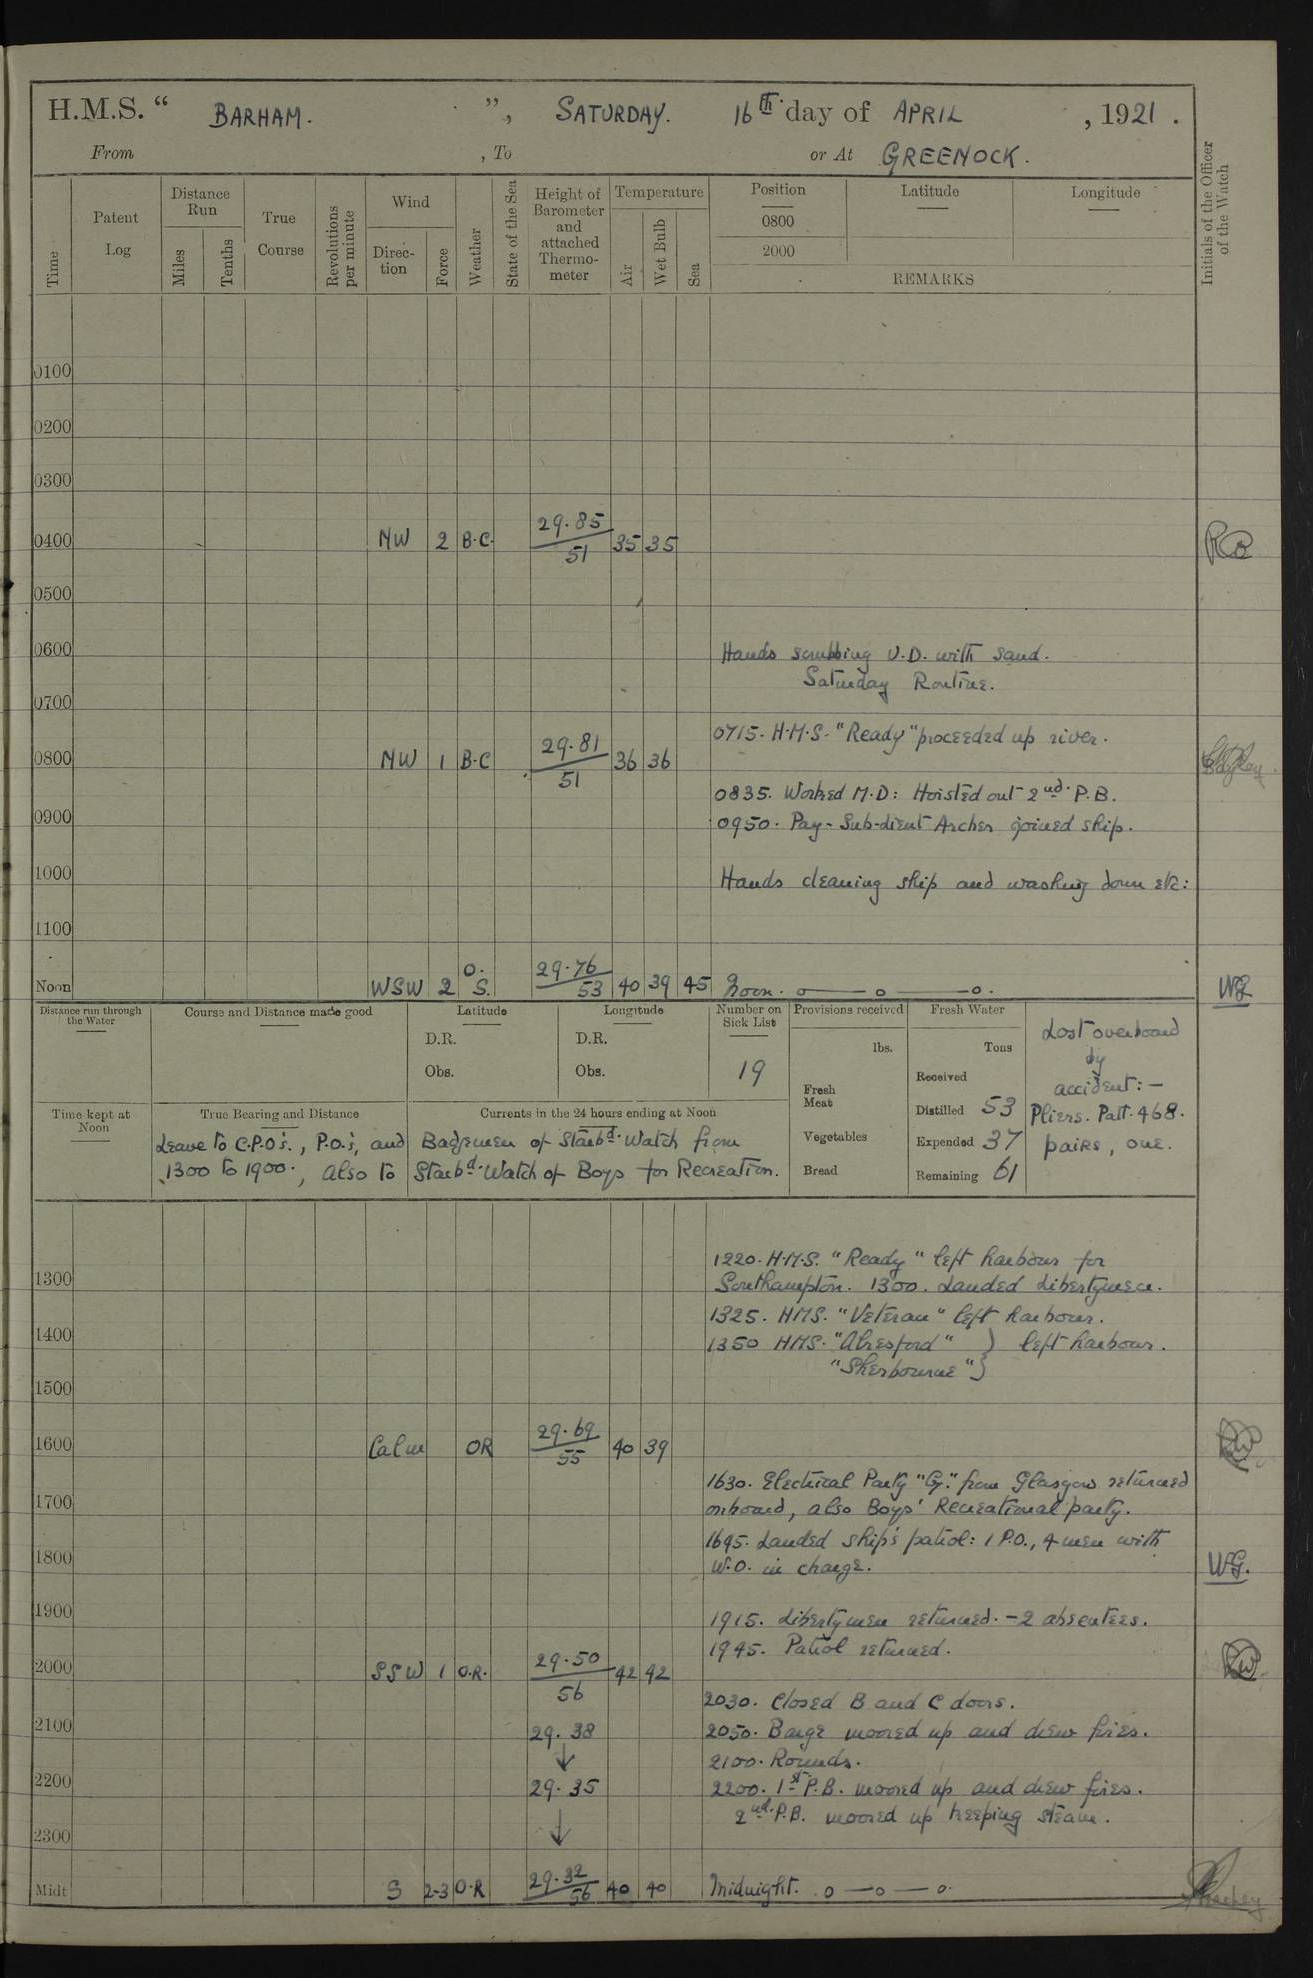 H.M.S. " BARHAM. ", SATURDAY. 16th day of APRIL , 1921 .
From , To or At GREENOCK.
Time
Patent Log
Distance Run
Miles
Tenths
True Course
Revolutions per minute
Wind
Direc-tion
Force
Weather
State of the Sea
Height of Barometer and attached Thermo-meter
Temperature
Air
Wet Bulb
Sea
Position
Latitude
Longitude
0800
2000
REMARKS
Initials of the Officer of the Watch
0100
0200
0300
0400 NW 2 B.C. 29.85 51 35 35
0500
0600 Hands scrubbing U.D. with sand.
Saturday Routine.
0700
0715. H.M.S. "Ready" proceeded up river.
0800 NW 1 B.C 29.81 51 36 36
0835. Worked M.D: Hoisted out 2nd. P.B.
0900 0950. Pay-Sub-Lieut Archer joined ship.
1000 Hands cleaning ship and washing down etc:
1100
Noon WSW 2 O.S. 29.76 53 40 39 45 Noon. o——o——o. WG
Distance run through the Water
Course and Distance made good
Latitude
D.R.
Obs.
Longitude
D.R.
Obs.
Number on Sick List
19
Provisions received
lbs.
Fresh Meat
Vegetables
Bread
Fresh Water
Tons
Received
Distilled 53
Expended 37
Remaining 61
Lost overboard
by
accident:—
Pliers. Patt. 468.
pairs, one.
Time kept at Noon
True Bearing and Distance
Currents in the 24 hours ending at Noon
Leave to C.P.O's., P.O.'s, and Badgemen of Starbd. Watch from
1300 to 1900., also to Starbd. Watch of Boys for Recreation.
1220. H.M.S. "Ready" left harbour for
1300 Southampton. 1300. Landed Libertymen.
1325. HMS. "Veteran" left harbour.
1400 1350 HMS. "Alresford" } left harbour.
"Sherbourne" }
1500
1600 Calm OR 29.69 55 40 39
1630. Electrical Party "G." from Glasgow returned
1700 onboard, also Boys' Recreational party.
1645. Landed ship's patrol: 1 P.O., 4 men with
1800 W.O. in charge. WG.
1900 1915. Libertymen returned.-2 absentees.
1945. Patrol returned.
2000 SSW 1 O.R. 29.50 56 42 42
2030. Closed B and C doors.
2100 29.38 2050. Barge moored up and drew fires.
2100. Rounds.
2200 29.35 2200. 1st P.B. moored up and drew fires.
2nd. P.B. moored up keeping steam.
2300
Midt S 2-3 O.R 29.32 56 40 40 Midnight. o—o—o.